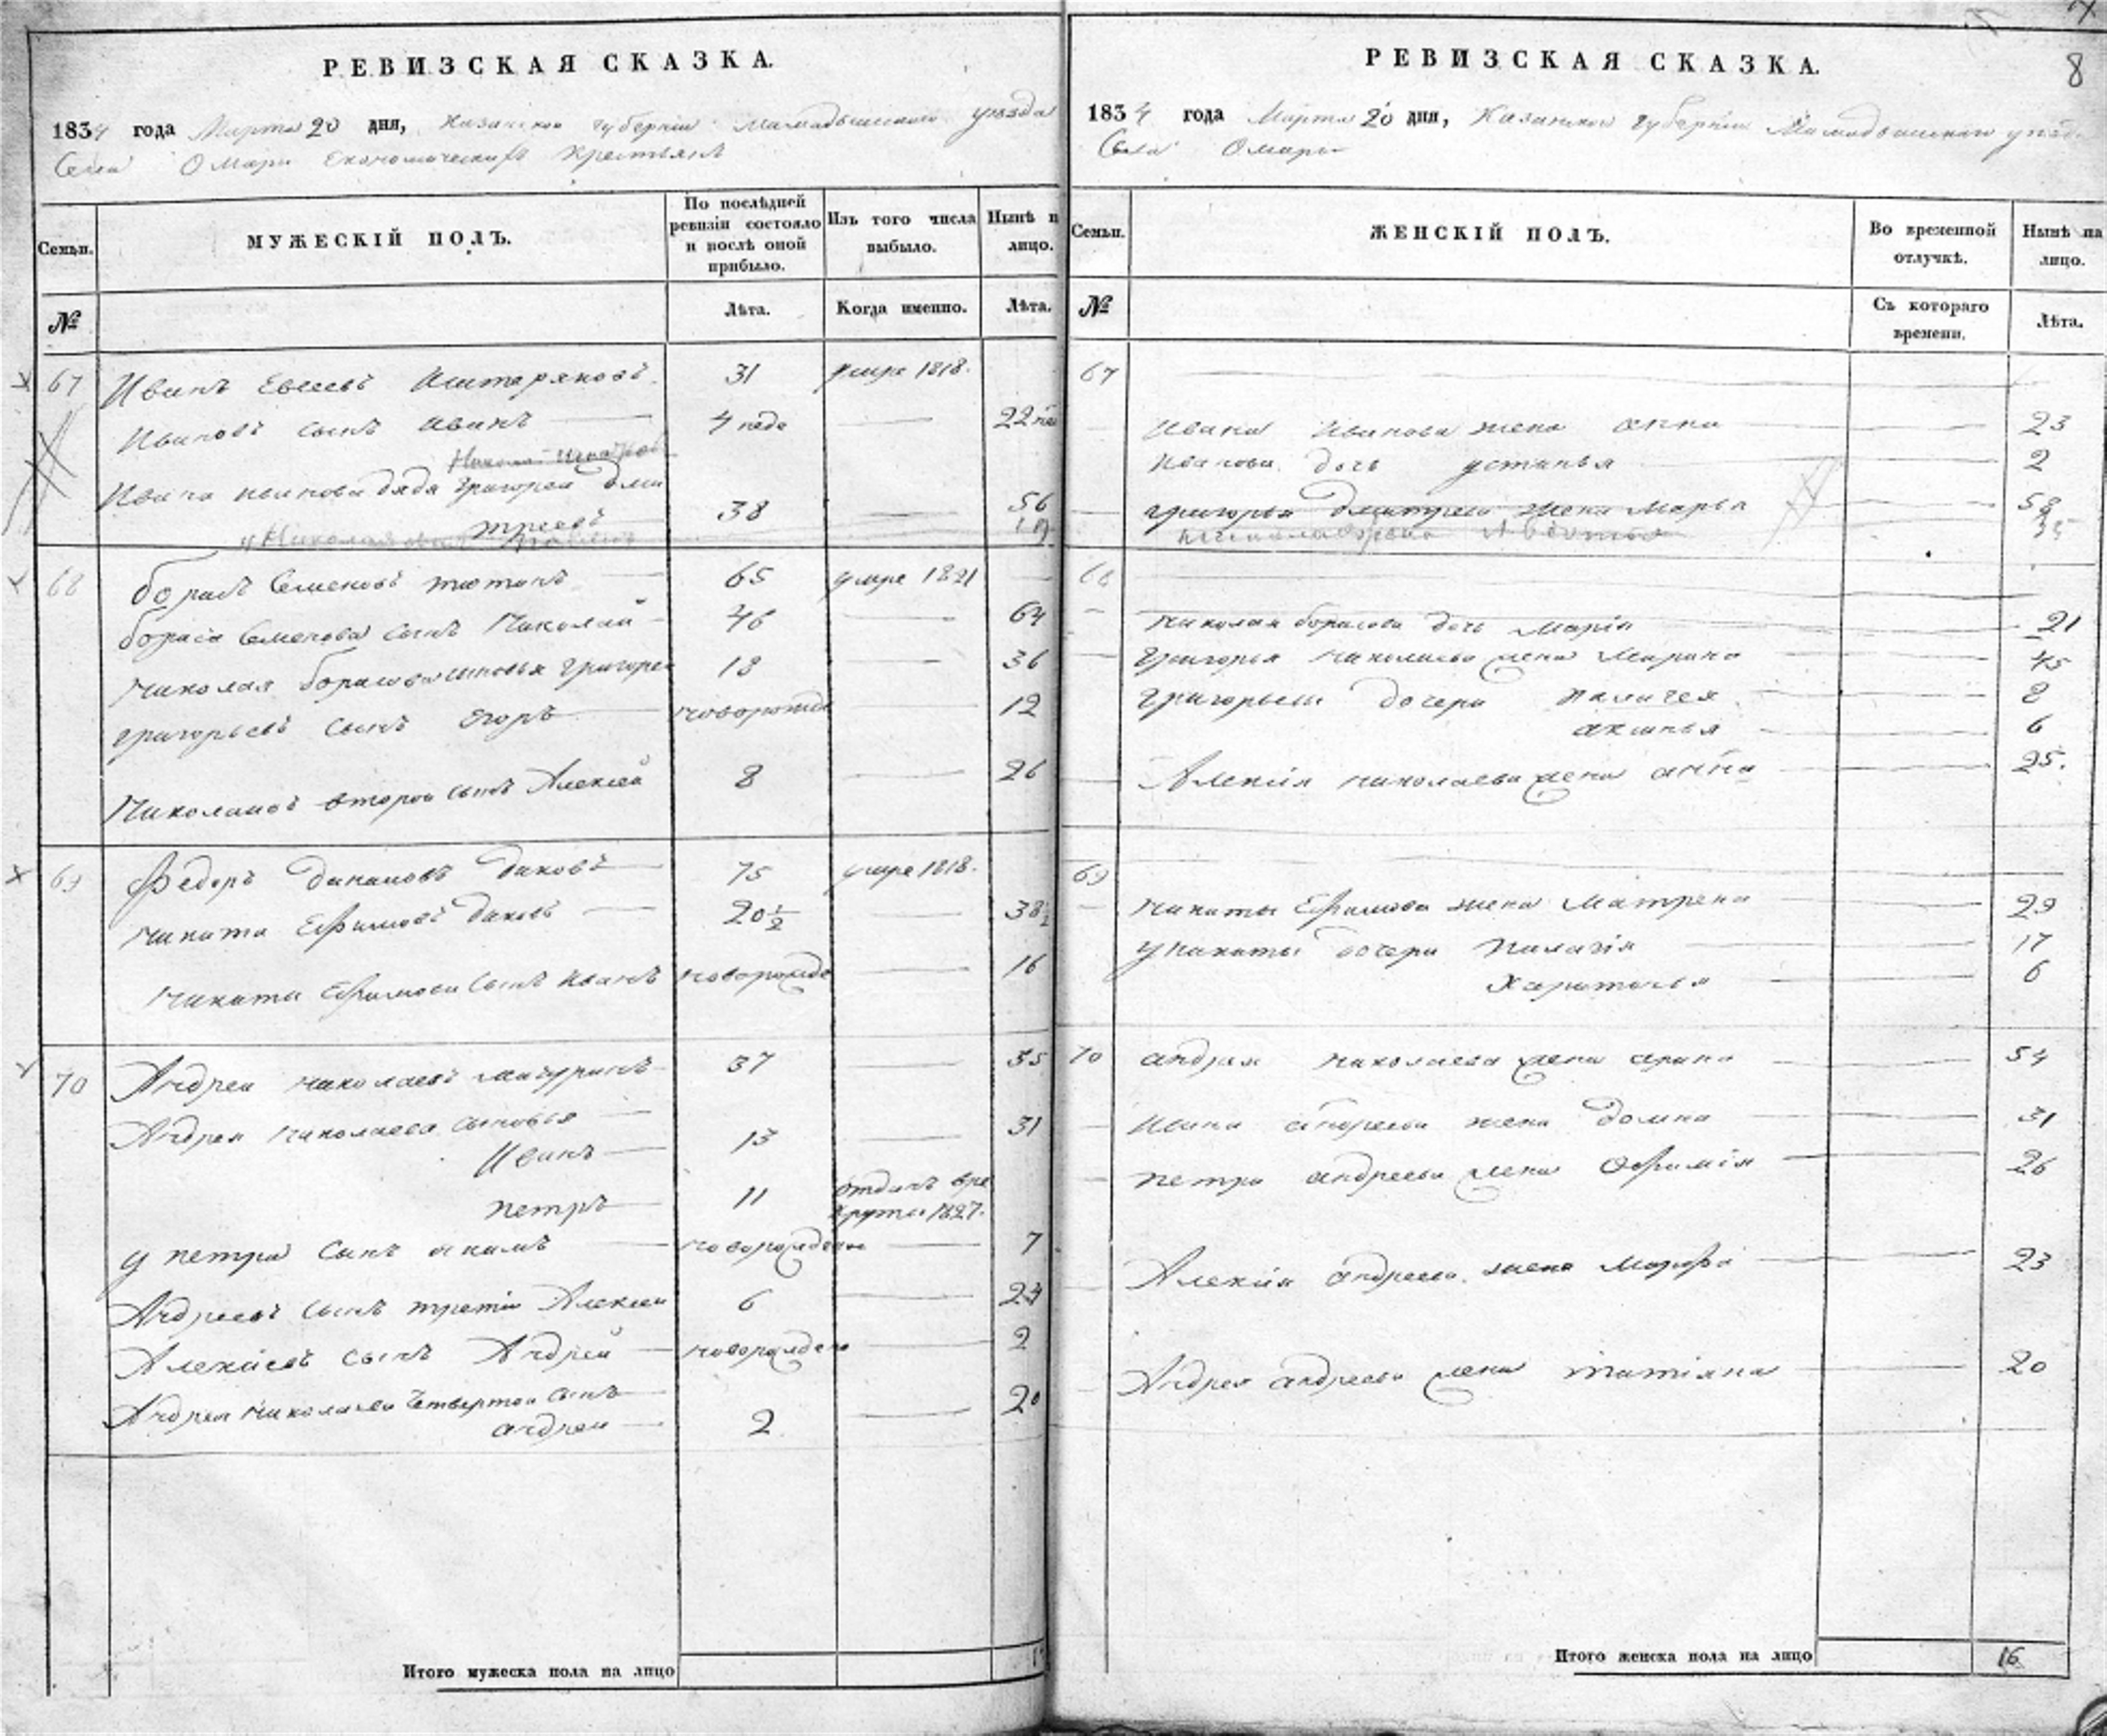 РЕВИЗСКАЯ СКАЗКА.
1834 года Марта 20 дня, Казанской губернии Мамадышскаго уезда
Села Омари Економическихъ Крестьянъ
Семьи.
МУЖЕСКІЙ ПОЛЪ.
По послѣдней ревизіи состояло и послѣ оной прибыло.
Изъ того числа выбыло.
Нынѣ н лицо.
№
Лѣта.
Когда именно.
Лѣта.
67 Иванъ Евсеевъ 31 умре 1818.
Ивановъ сынъ Иванъ 4 неде 22
Ивана Иванова дядя Григореи Дми
треевъ 38 56
68 борисъ Семеновъ 65 умре 1821
бориса Семенова сынъ Николай 46 64
Николая борисова сыновья григореи 18 36
григорьевъ сынъ Егоръ новорожде 12
Николаевъ второи сынъ Алексей 8 26
69 Федоръ Даниловъ Диковъ 75 умре 1818.
Никита Ефимовъ Диковъ 20½ 38½
Никиты Ефимова сынъ Иванъ новорожде 16
70 Андреи Николаевъ мичуринъ 37 55
Андрея Николаева сыновья
Иванъ 13 31
петръ 11 отданъ вре
круты 1827.
у петра сынъ акимъ новорожденъ 7
Андреевъ сынъ третіи Алексеи 6 24
Алексіевъ сынъ Андрей новорожден 2
Андрея Николаева четвертои сынъ
андреи 2 20
Итого мужеска пола на лицо
8
РЕВИЗСКАЯ СКАЗКА.
1834 года Марта 20 дня, Казанской губерніи Мамадышскаго уезда
Села Омари
Семьи.
ЖЕНСКІЙ ПОЛЪ.
Во временной отлучкѣ.
Нынѣ на лицо.
№
Съ котораго времени.
Лѣта.
67
Ивана Иванова жена анна 23
Иванова дочь устинья 2
григорья дмитреева жена Марья 58
68
Николая борисова дочь Марія 21
Григорья Николаева жена Марина 45
Григорьевы дочери палагея 8
аксинья 6
Алексія николаева жена анна 25.
69
Никиты Ефимова жена Матрена 29
у никиты дочери Палагія 17
Харитонья 6
70 андрея николаева жена арина 54
Ивана андреева жена Домна 31
петра андреева жена Офимія 26
Алексія андреева жена Марфа 23
Андрея андреева жена татіяна 20
Итого женска пола на лицо 16